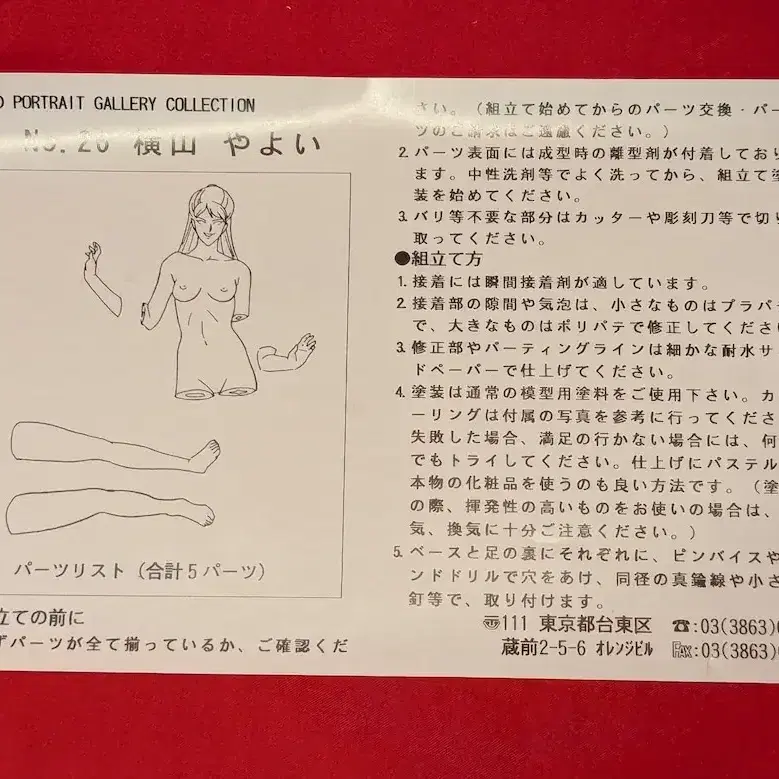 PORTRAIT GALLERY COLLECTION
No. 20 横山 やよい
パーツリスト(合計5パーツ)
立ての前に
ずパーツが全て揃っているか、ご確認くだ
さい。(組立て始めてからのパーツ交換・パー
ツのご請求はご遠慮ください。)
2. パーツ表面には成型時の離型剤が付着しており
ます。中性洗剤等でよく洗ってから、組立て塗
装を始めてください。
3. バリ等不要な部分はカッターや彫刻刀等で切り
取ってください。
●組立て方
1. 接着には瞬間接着剤が適しています。
2. 接着部の隙間や気泡は、小さなものはプラパテ
で、大きなものはポリパテで修正してくださ
3. 修正部やパーティングラインは細かな耐水サ
ドペーパーで仕上げてください。
4. 塗装は通常の模型用塗料をご使用下さい。カ
ーリングは付属の写真を参考に行ってくださ
失敗した場合、満足の行かない場合には、何
でもトライしてください。仕上げにパステル
本物の化粧品を使うのも良い方法です。(塗
の際、揮発性の高いものをお使いの場合は、
気、換気に十分ご注意ください。)
5. ベースと足の裏にそれぞれに、ピンバイスや
ンドドリルで穴をあけ、同径の真鍮線や小さ
釘等で、取り付けます。
〒111 東京都台東区 ☎:03(3863)
蔵前2-5-6 オレンジビル FAX:03(3863)